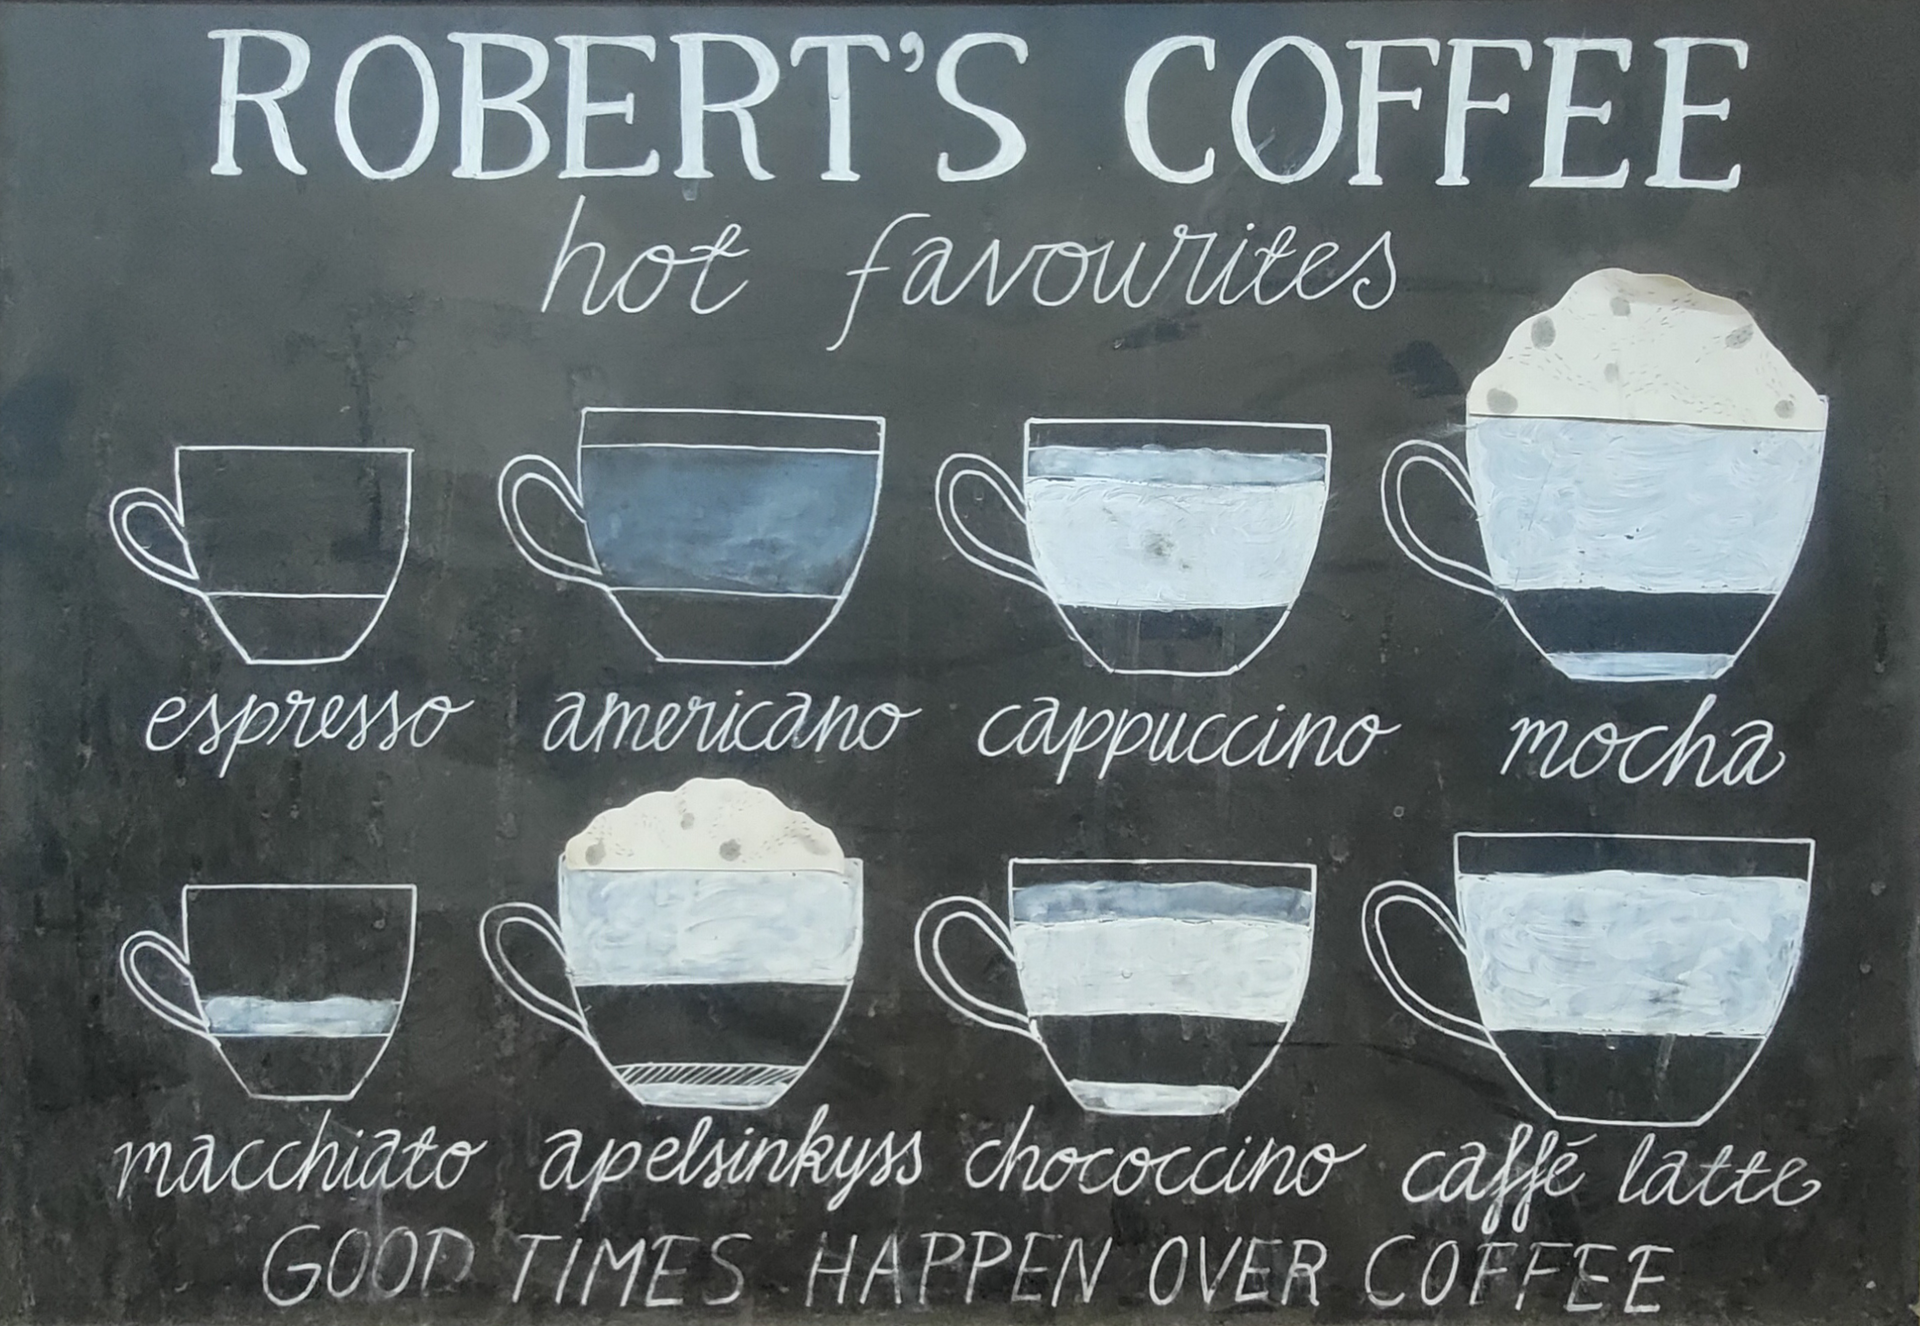 ROBERT'S COFFEE
hot favourites
espresso americano cappuccino mocha
macchiato apelsinkyss chococcino caffé latte
GOOD TIMES HAPPEN OVER COFFEE